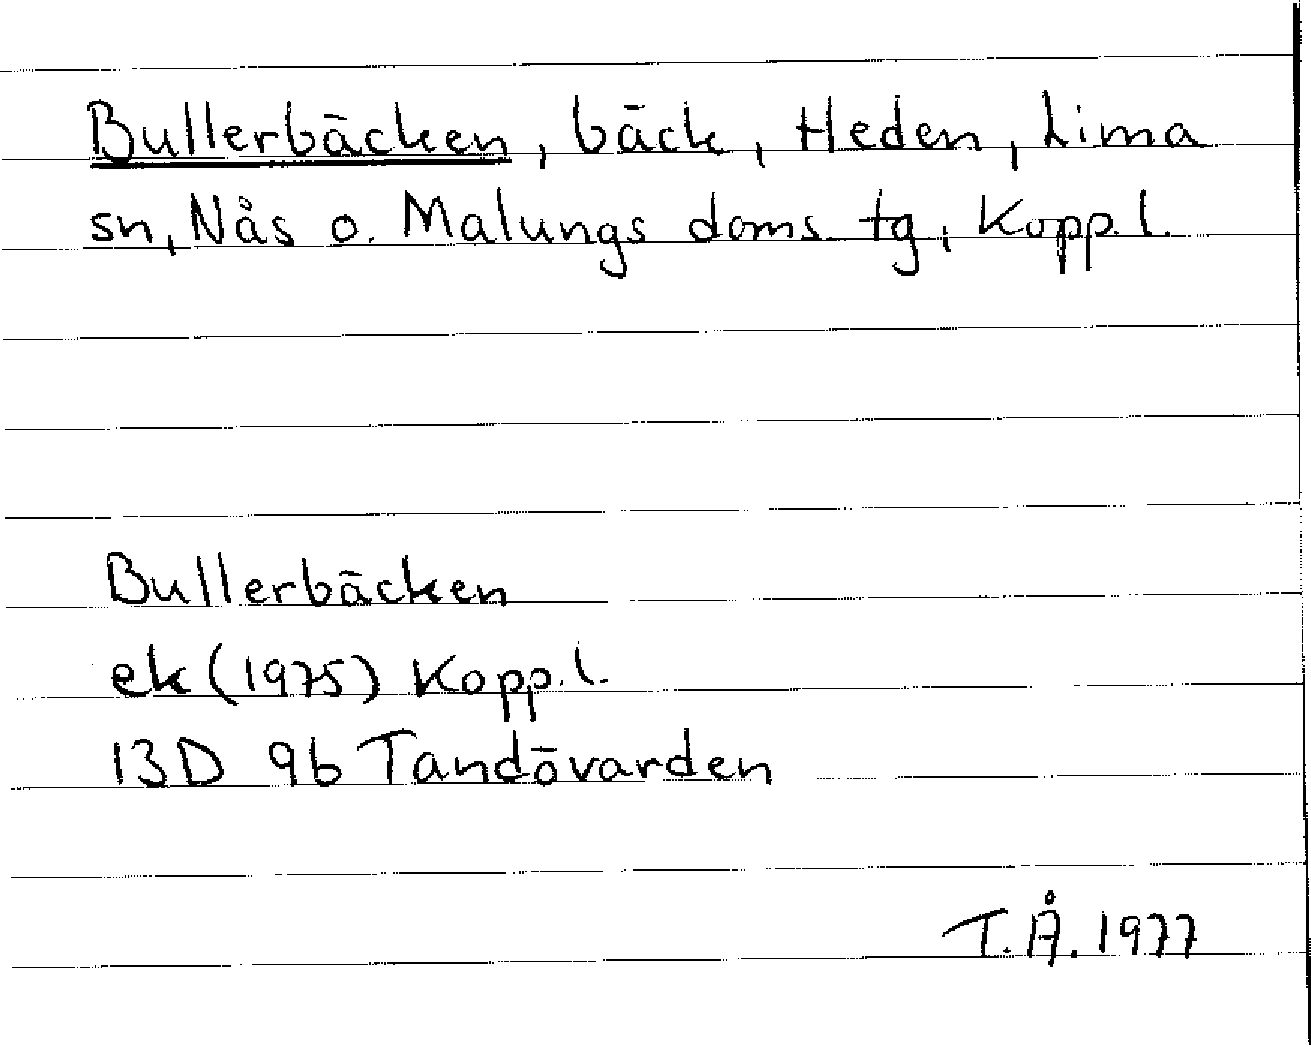 Bullerbäcken, bäck, Heden, Lima
sn, Nås o. Malungs doms tg, Kopp.l.
Bullerbäcken
ek (1975) Kopp.l.
13D 9b Tandövarden
T.Å. 1977